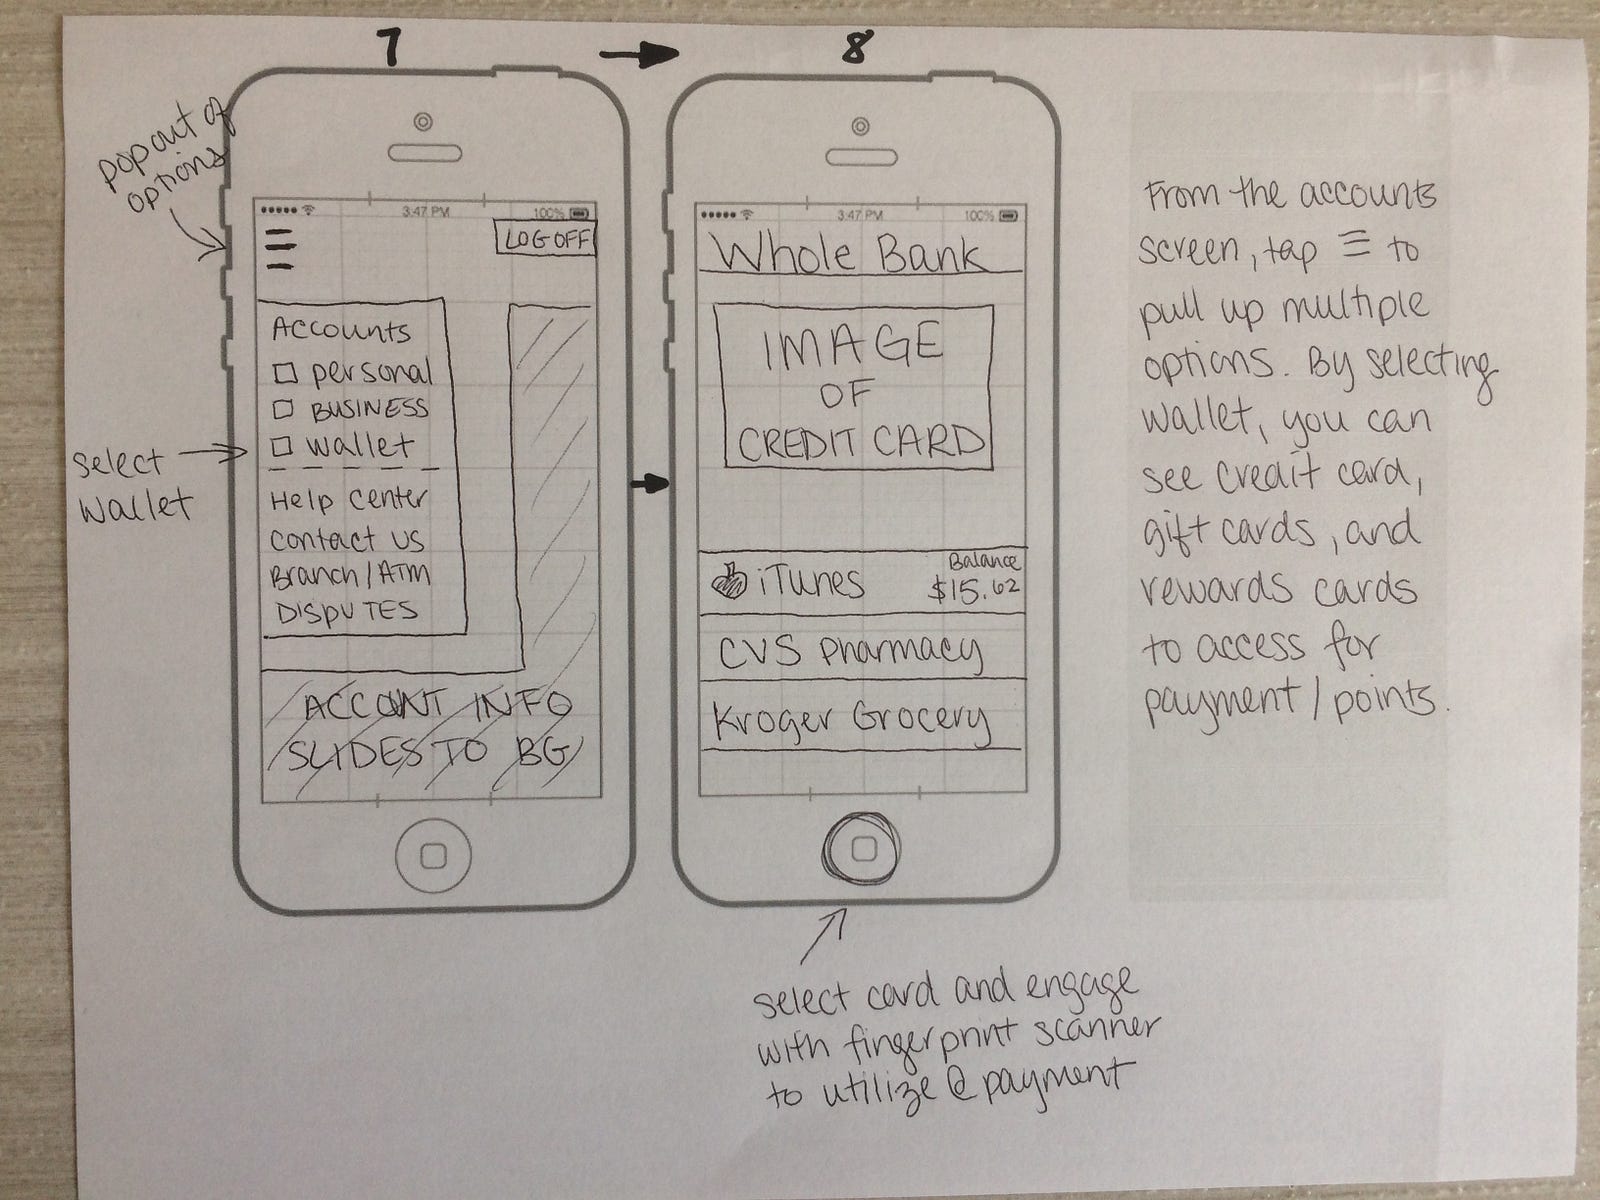 7
8
pop out of
options
3:47 PM
100%
LOG OFF
Accounts
personal
BUSINESS
wallet
Help center
contact us
Branch/ATM
DISPUTES
ACCOUNT INFO
SLIDES TO BG
select
wallet
3:47 PM
100%
Whole Bank
IMAGE
OF
CREDIT CARD
iTunes
Balance
$15.62
CVS pharmacy
Kroger Grocery
select card and engage
with fingerprint scanner
to utilize @ payment
From the accounts
screen, tap ☰ to
pull up multiple
options. By selecting
wallet, you can
see credit card,
gift cards, and
rewards cards
to access for
payment/points.